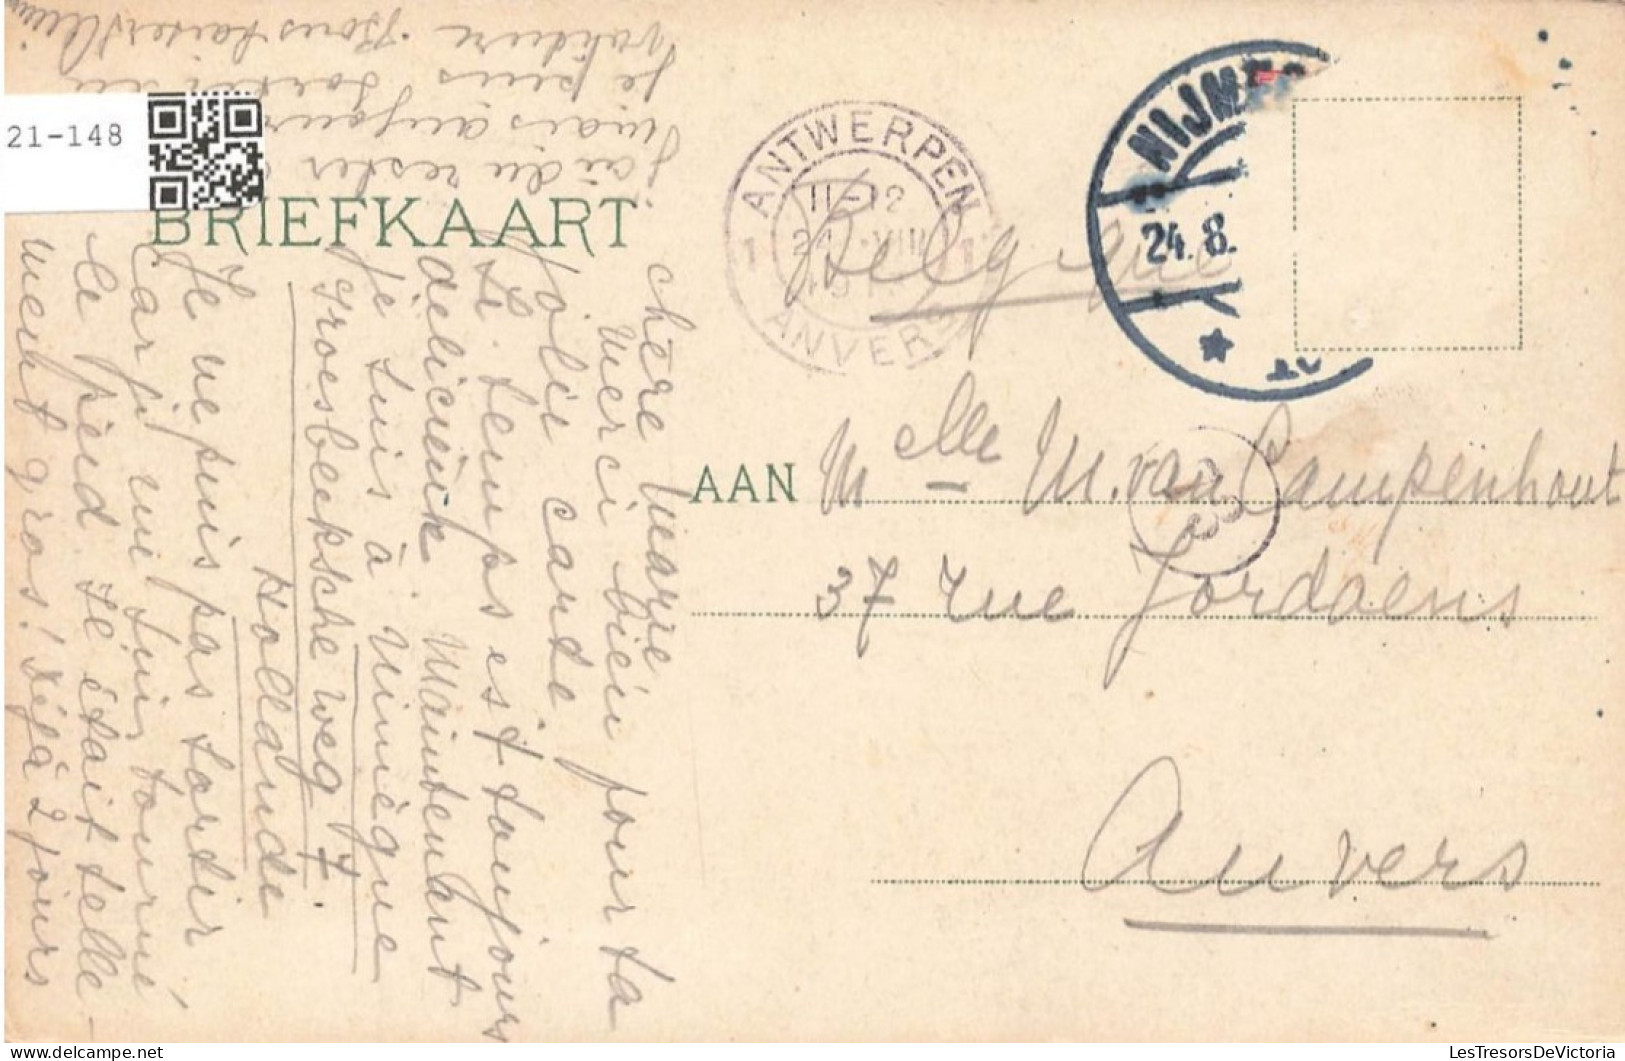 21-148
BRIEFKAART
ANTWERPEN
11-12
24 VIII
1 1
ANVERS
NIJME
24.8.
Belgique
AAN Melle M. van Campenhout
37 rue Jordaens
Anvers
Chère Marie
Merci bien pour ta
jolie carte
Le temps est toujours
délicieux Maintenant
je suis à Nimègue
Groesbeeksche weg 7
Hollande
Je ne puis pas sortir
Car j'
tourné
le pied il était telle-
ment gros! déjà 2 jours
j'ai dû rester
mais aujour
Je puis sortir en
voiture. Bons baisers
LesTresorsDeVictoria.com